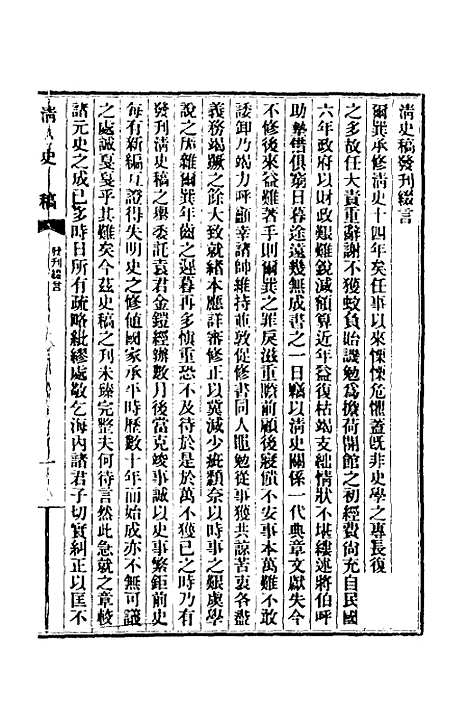 清史稿發刊綴言
爾巽承修清史十四年矣任事以來慄慄危懼蓋既非史學之專長復
之多故任大責重辭謝不獲蚊負始譏勉為擔荷開館之初經費尚充自民國
六年政府以財政艱難銳減額算近年益復枯竭支絀情狀不堪縷述將伯呼
助墊借俱窮日暮途遠幾無成書之一日竊以清史關係一代典章文獻失今
不修後來益難著手則爾巽之罪戾滋重瞻前顧後寢饋不安事本萬難不敢
諉卸乃竭力呼籲幸諸帥維持並敦促修書同人黽勉從事獲共諒苦衷各盡
義務竭蹶之餘大致就緒本應詳審修正以冀減少疵纇奈以時事之艱虞學
說之厖雜爾巽年齒之遲暮再多慎重恐不及待於是於萬不獲已之時乃有
發刊清史稿之舉委託袁君金鎧經辦數月後當克竣事誠以史事繁鉅前史
每有新編互證得失明史之修値國家承平時歷數十年而始成亦不無可議
之處誠戛戛乎其難矣今茲史稿之刊未臻完整夫何待言然此急就之章較
諸元史之成已多時日所有疏略紕繆處敬乞海內諸君子切實糾正以匡不
清史稿
發刊綴言